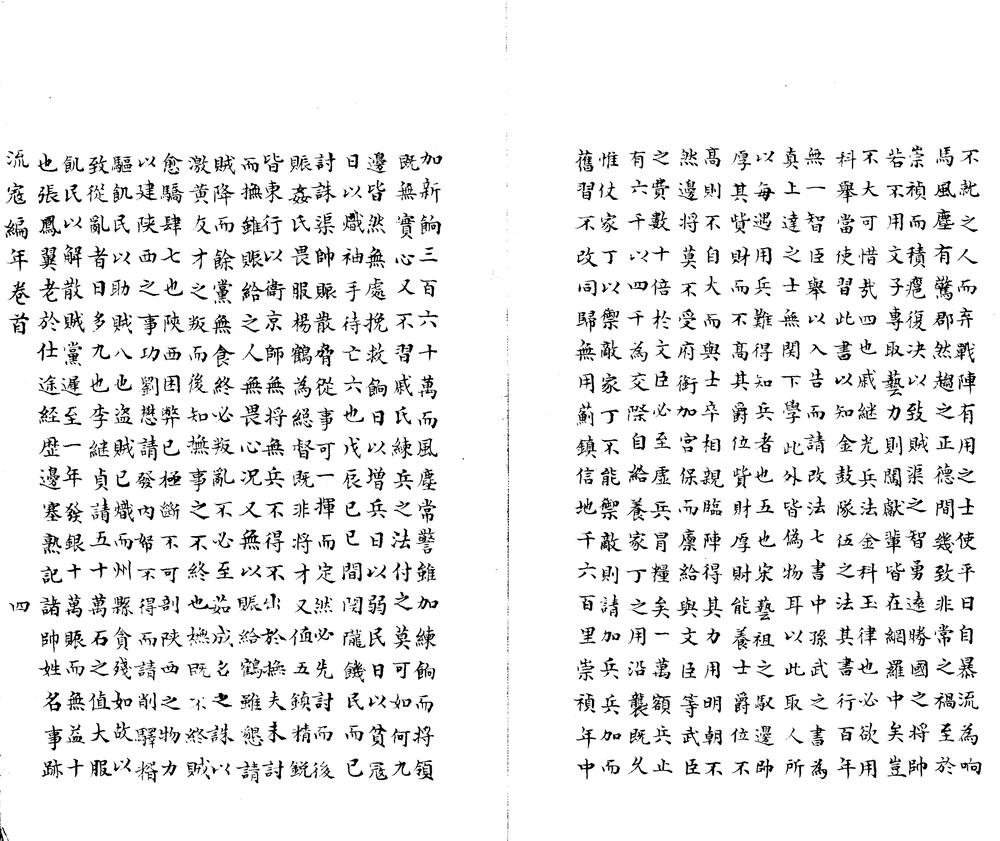 不就之人而弃戰陣有用之士使平日自暴流為响
馬風塵有驚郡然趙之正德間幾致非常之禍至於
崇禎而積麀復决以致賊渠之智勇遠勝國之將帥
若不用文子專取藝力則闖獻輩皆在網羅中矣豈
不大可惜哉四也戚継光兵法金科玉律也必欲用
科舉當使習此書以知金鼓隊伍之法其書行百年
無一智臣舉以入告而請改法七書中孫武之書為
真上達之士無関下學此外皆偽物耳以此取人所
以每遇用兵難得知兵者也五也宋藝祖之馭邊帥
厚其貲財而不髙其爵位貲財厚財能養士爵位不
髙則不自大而與士卒相親臨陣得其力用明朝不
然邊将莫不受府銜加宮保而廪給與文臣等武臣
之費數十倍於文臣必至虚兵冒糧矣一萬額兵止
有六千以四千為交際自給養家丁之用沿襲既久
惟仗家丁以禦敵家丁不能禦敵則請加兵加而
舊習不改同歸無用薊鎮信地千六百里崇禎年中
加新餉三百六十萬而風塵常警雖加練餉而將領
既無實心又不習戚氏練兵之法付之莫可如何九
邊皆然無處挽救餉日以增兵日以弱民日以貧冦
日以熾袖手待亡六也戊辰已巳間関隴饑民而已
討誅渠帥賑散脅從事可一揮而定然必先討而後
賑姦氏畏服楊鶴為緫督既非將才又值五鎮精銳
皆東行以衛京師無將無兵不得不出於撫夫未討
而撫雖賑給之人無畏心况又無以賑給鶴雖懇請
賊降而餘黨無食終必叛亂不必至茹成名之誅以
激黄友才之叛而後知撫事之不終也撫既不終賊
愈驕肆七也陝西困弊已極斷不可剖陝西之物力
以建陝西之事功劉懋請發內帑不得而請削驛糈
驅飢民以助賊八也盜賊已熾而州縣貪殘如故以
致從亂者日多九也李継貞請五十萬石之值大服
飢民以解散賊黨遲至一年發銀十萬賑而無益十
也張鳳翼老於仕途経歴邊塞熟記諸帥姓名事跡
流寇編年卷首 四